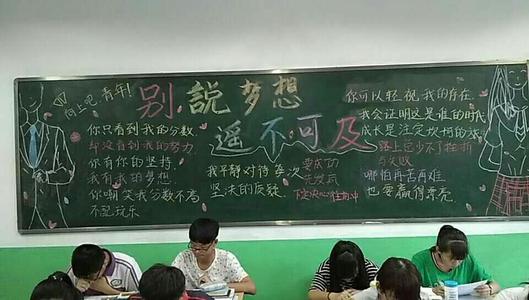 向上吧 青年!
别說梦想
遥不可及
你只看到我的分数
却没看到我的努力
你有你的坚持
我有我的梦想
你嘲笑我分数不高
不配玩乐
我平静对待 每次
坚决的质疑
要成功
先发疯
下定决心往前冲
你可以轻视我的存在
我会证明这是谁的时代
成长是注定坎坷的旅
路上总少不了挫折
与失败
哪怕再苦再难
也要赢得漂亮